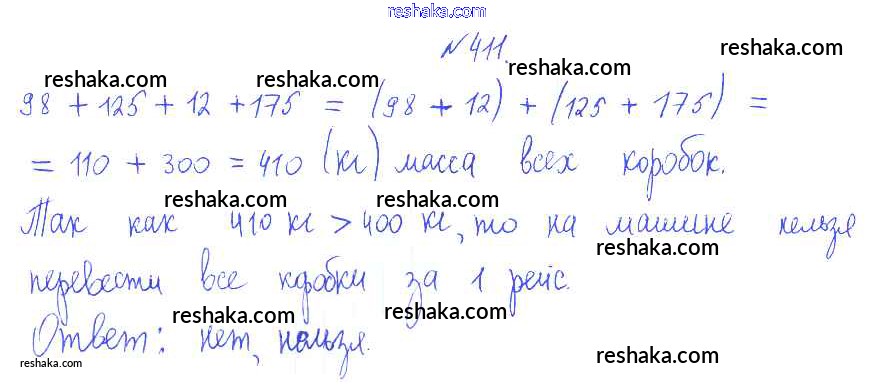 reshaka.com
№ 411.
reshaka.com reshaka.com reshaka.com
98 + 125 + 12 + 175 = (98 + 12) + (125 + 175) =
= 110 + 300 = 410 (кг) масса всех коробок.
reshaka.com reshaka.com
Так как 410 кг > 400 кг, то на машине нельзя
reshaka.com
перевести все кробки за 1 рейс.
reshaka.com reshaka.com
Ответ: нет, нельзя.
reshaka.com
reshaka.com